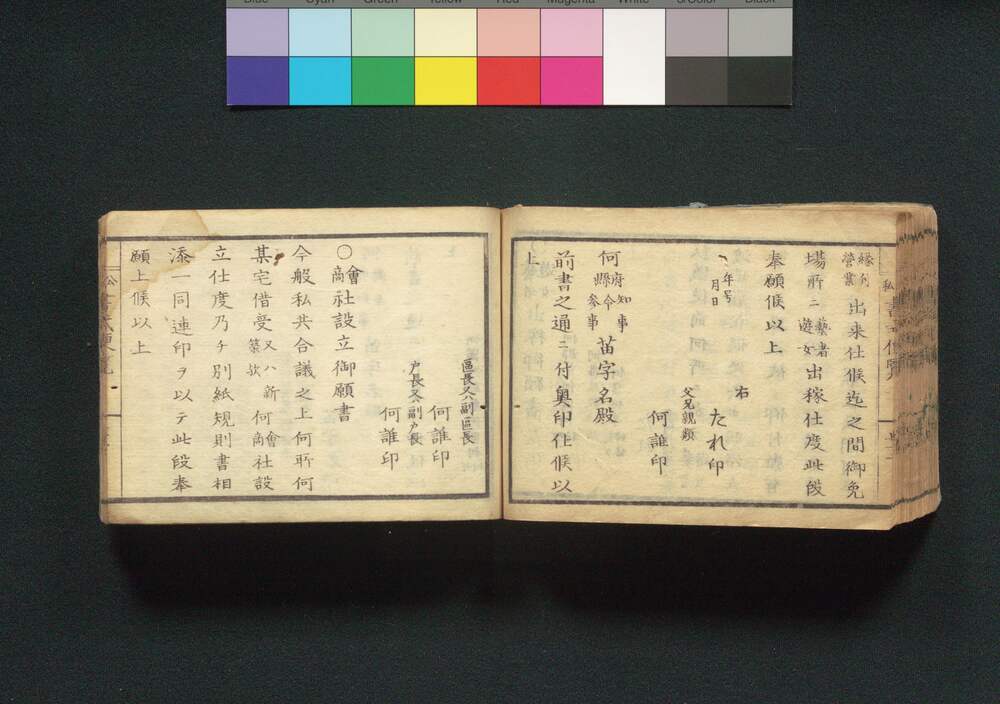 Blue Cyan Green Yellow Red Magenta White 3/Color Black
縁付営業出来仕候迄之間御免
場所ニ藝者遊女出稼仕度此段
奉願候以上
年号月日
右
たれ印
父兄親類
何誰印
何府縣知令事参事苗字名殿
前書之通ニ付奥印仕候以
上
區長又ハ副區長
何誰印
戸長又ハ副戸長
何誰印
〇會商社設立御願書
今般私共合議之上何所何
某宅借受又ハ新築欤何會商社設
立仕度乃チ別紙規則書相
添一同連印ヲ以テ此段奉
願上候以上